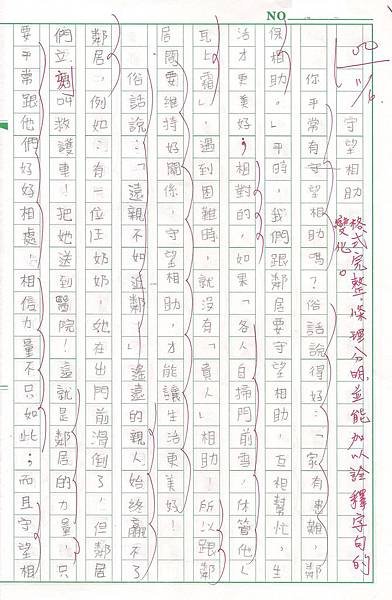 NO
11/6.
格式完整,條理分明,並能加以詮釋字句的
變化。
守望相助
你平常有守望相助嗎?俗話說得好:「家有患難,鄰
保相助。」平時,我們跟鄰居要守望相助,互相幫忙,生
活才更美好。相對的,如果「各人自掃門前雪,休管他人
瓦上霜」,遇到困難時,就沒有「貴人」相助!所以跟鄰
居間要維持好關係,守望相助,才能讓生活更美好!
俗話說:「遠親不如近鄰!」遙遠的親人始終贏不了
鄰居,例如:有一位汪奶奶,她在出門前滑倒了,但鄰居
們立刻叫救護車!把她送到醫院!這就是鄰居的力量,只
要平常跟他們好好相處,相信力量不只如此;而且守望相